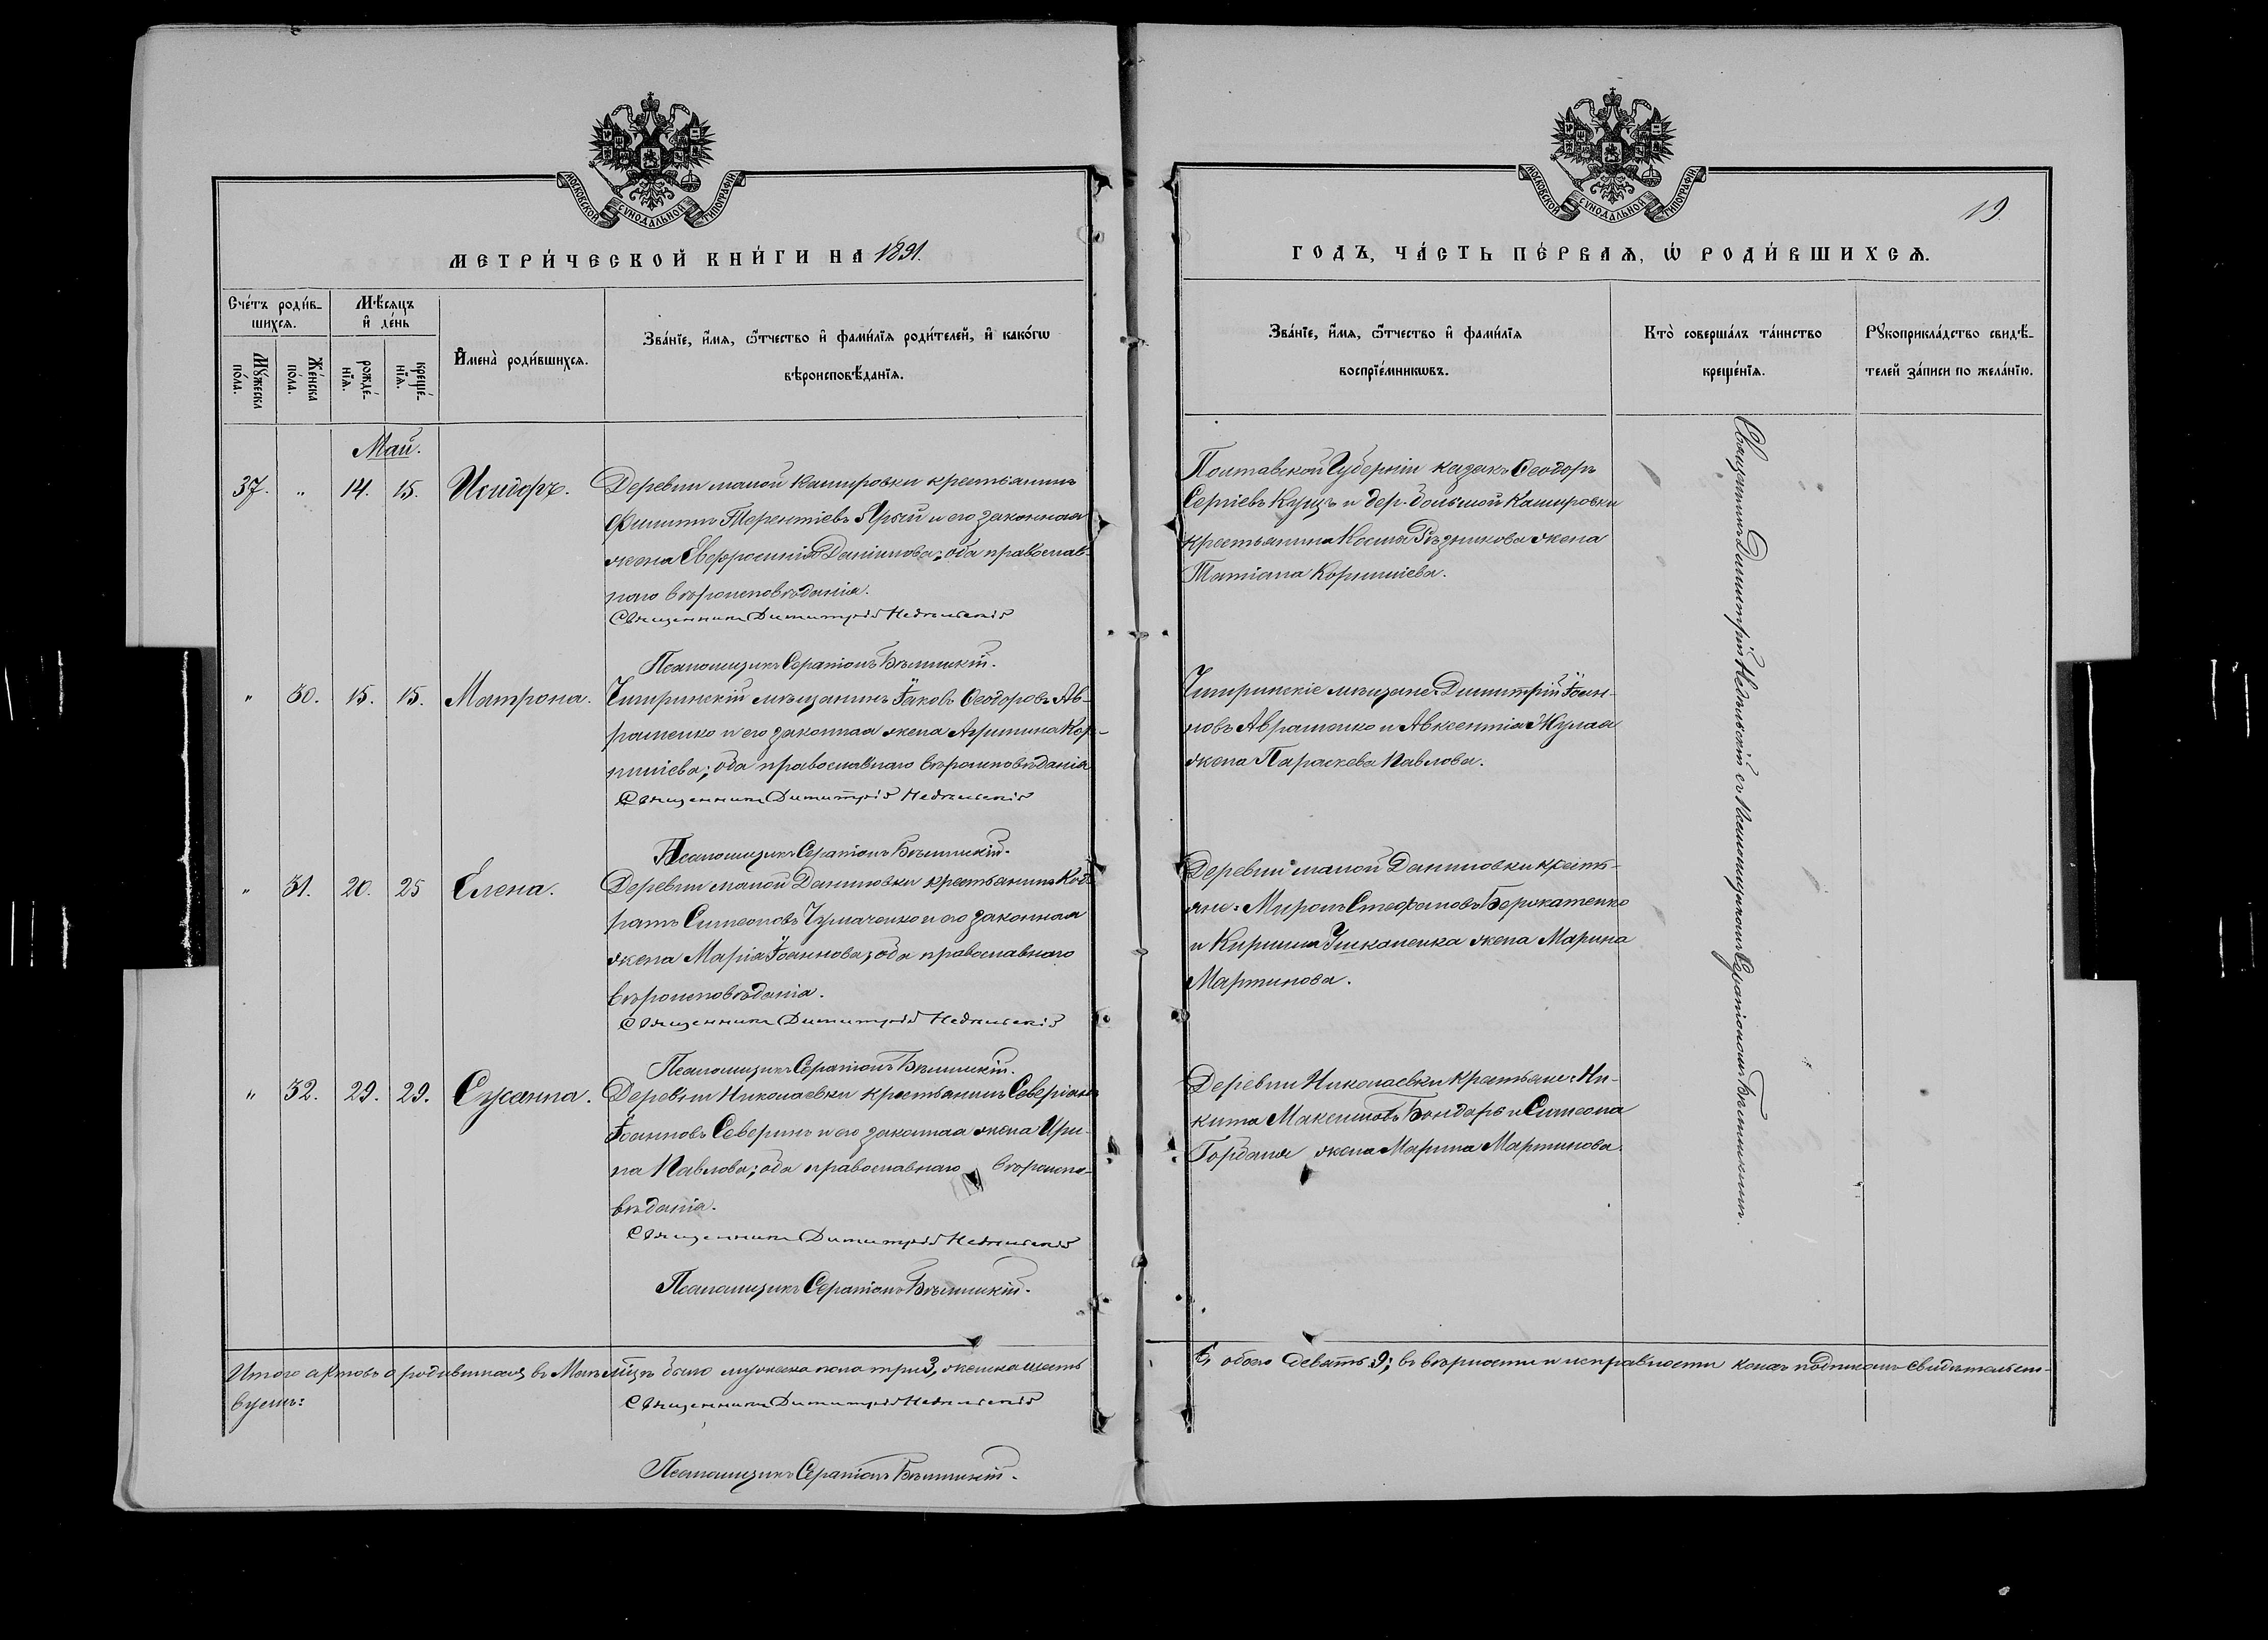 МОСКОВСКОЙ СУНОДАЛЬНОЙ ТИПОГРАФІИ
МЕТРИ́ЧЕСКОЙ КНИ́ГИ НА 1891.
Сче́тъ роди́в-
шихсѧ.
Мѣ́сѧцъ
и҆ де́нь
Мꙋ́жеска
по́ла.
Же́нска
по́ла.
рожде́-
нїѧ.
креще́-
нїѧ.
И҆мена̀ роди́вшихсѧ.
Зва́нїе, и҆́мѧ, ѻ҆́тчество и҆ фами́лїѧ роди́телей, и҆ како́гѡ
вѣроисповѣ́данїѧ.
Май.
37. " 14. 15. Исидоръ.
Деревни малой Кашировки крестьянинъ
Филиппъ Терентіевъ Ярый и его законная
жена Евфросинія Даніилова; оба православ-
наго вѣроисповѣданія.
Священникъ Димитрій Недѣльскій
Псаломщикъ Серапіонъ Бѣлинскій.
" 30. 15. 15. Матрона.
Чигиринскій мѣщанинъ Іаковъ Ѳеодоровъ Ав-
раменко и его законная жена Агрипина Кор-
ниліева; оба православнаго вѣроисповѣданія
Священникъ Димитрій Недѣльскій
Псаломщикъ Серапіонъ Бѣлинскій.
" 31. 20. 25 Елена.
Деревни малой Даниловки крестьянинъ Код-
ратъ Симеоновъ Чумаченко и его законная
жена Марія Іоаннова; оба православнаго
вѣроисповѣданія.
Священникъ Димитрій Недѣльскій
Псаломщикъ Серапіонъ Бѣлинскій.
" 32. 29. 29. Сусанна.
Деревни Николаевки крестьянинъ Северіанъ
Іоанновъ Северинъ и его законная жена Ири-
на Павлова; оба православнаго вѣроиспо-
вѣданія.
Священникъ Димитрій Недѣльскій
Псаломщикъ Серапіонъ Бѣлинскій.
Итого актовъ о родившихся въ Маѣ мѣсяцѣ было мужеска пола три 3, женска шесть
вуемъ:
Священникъ Димитрій Недѣльскій
Псаломщикъ Серапіонъ Бѣлинскій.
МОСКОВСКОЙ СУНОДАЛЬНОЙ ТИПОГРАФІИ
19.
ГОДЪ, ЧА́СТЬ ПЕ́РВАѦ, Ѡ҆ РОДИ́ВШИХСѦ.
Зва́нїе, и҆́мѧ, ѻ҆́тчество и҆ фами́лїѧ
воспрїе́мникѡвъ.
Кто̀ соверша́лъ та́инство
креще́нїѧ.
Рꙋкоприкла́дство свидѣ́-
телей за́писи по жела́нїю.
Полтавской Губерніи казакъ Ѳеодоръ
Сергіевъ Куцъ и дер. большой Кашировки
крестьянина Космы Рѣзникова жена
Татіана Корниліева.
Чигиринскіе мѣщане: Димитрій Іоан-
новъ Авраменко и Авксентія Жулая
жена Параскева Павлова.
Деревни малой Даниловки кресть-
яне: Миронъ Стефановъ Бережатенко
и Кирилла Ушкаленка жена Марина
Мартинова.
Деревни Николаевки крестьяне: Ни-
кита Максимовъ Бондарь и Симеона
Горбаня жена Марина Мартинова.
Священникъ Димитрій Недѣльскій съ псаломщикомъ Серапіономъ Бѣлинскимъ.
6, обоего девять 9; въ вѣрности и исправности коихъ подписомъ свидѣтельст-